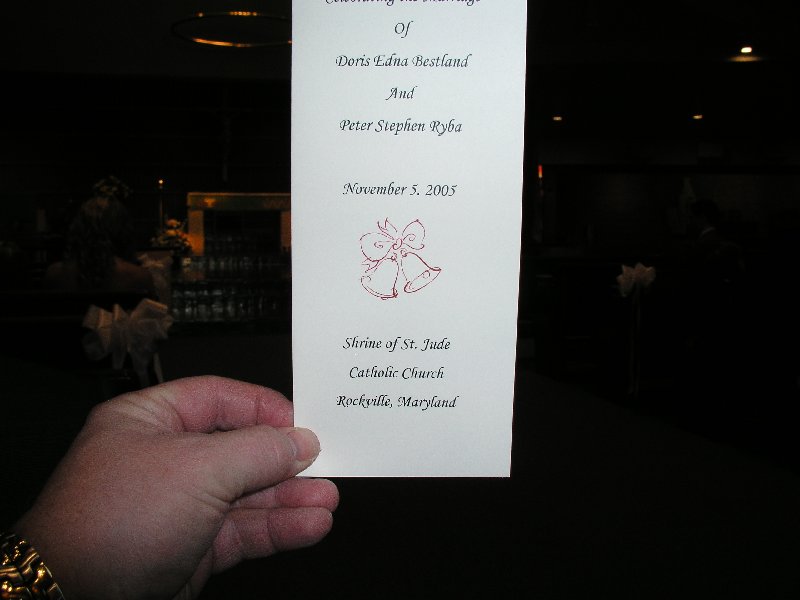 Celebrating the Marriage
Of
Doris Edna Bestland
And
Peter Stephen Ryba
November 5, 2005
Shrine of St. Jude
Catholic Church
Rockville, Maryland